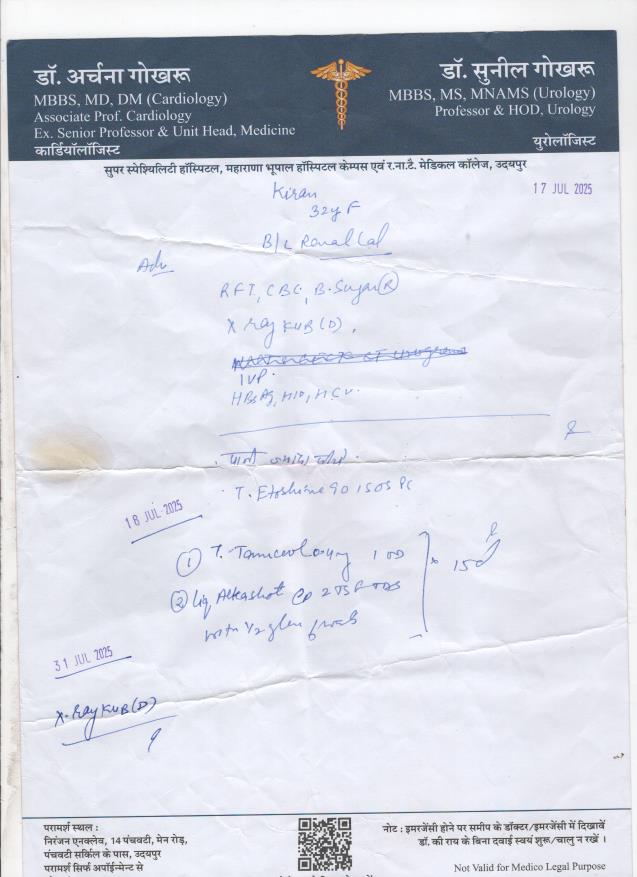 डॉ. अर्चना गोखरू
MBBS, MD, DM (Cardiology)
Associate Prof. Cardiology
Ex. Senior Professor & Unit Head, Medicine
कार्डियॉलॉजिस्ट
डॉ. सुनील गोखरू
MBBS, MS, MNAMS (Urology)
Professor & HOD, Urology
युरोलॉजिस्ट
सुपर स्पेश्यिलिटी हॉस्पिटल, महाराणा भूपाल हॉस्पिटल केम्पस एवं र.ना.टै. मेडिकल कॉलेज, उदयपुर
17 JUL 2025
Kiran
32y F
B/L Renal Cal
Adv
RFT, CBC, B. Sugar (R)
X ray KUB (D),
IVP.
HBsAg, HIV, HCV.
पानी ज्यादा पीये
18 JUL 2025
1
2
with 1/2 glass
x 15d
31 JUL 2025
X-ray KUB (D)
परामर्श स्थल :
निरंजन एनक्लेव, 14 पंचवटी, मेन रोड़,
पंचवटी सर्किल के पास, उदयपुर
परामर्श सिर्फ अपॉईन्मेन्ट से
नोट : इमरजेंसी होने पर समीप के डॉक्टर/इमरजेंसी में दिखावें
डॉ. की राय के बिना दवाई स्वयं शुरू/चालु न रखें ।
Not Valid for Medico Legal Purpose